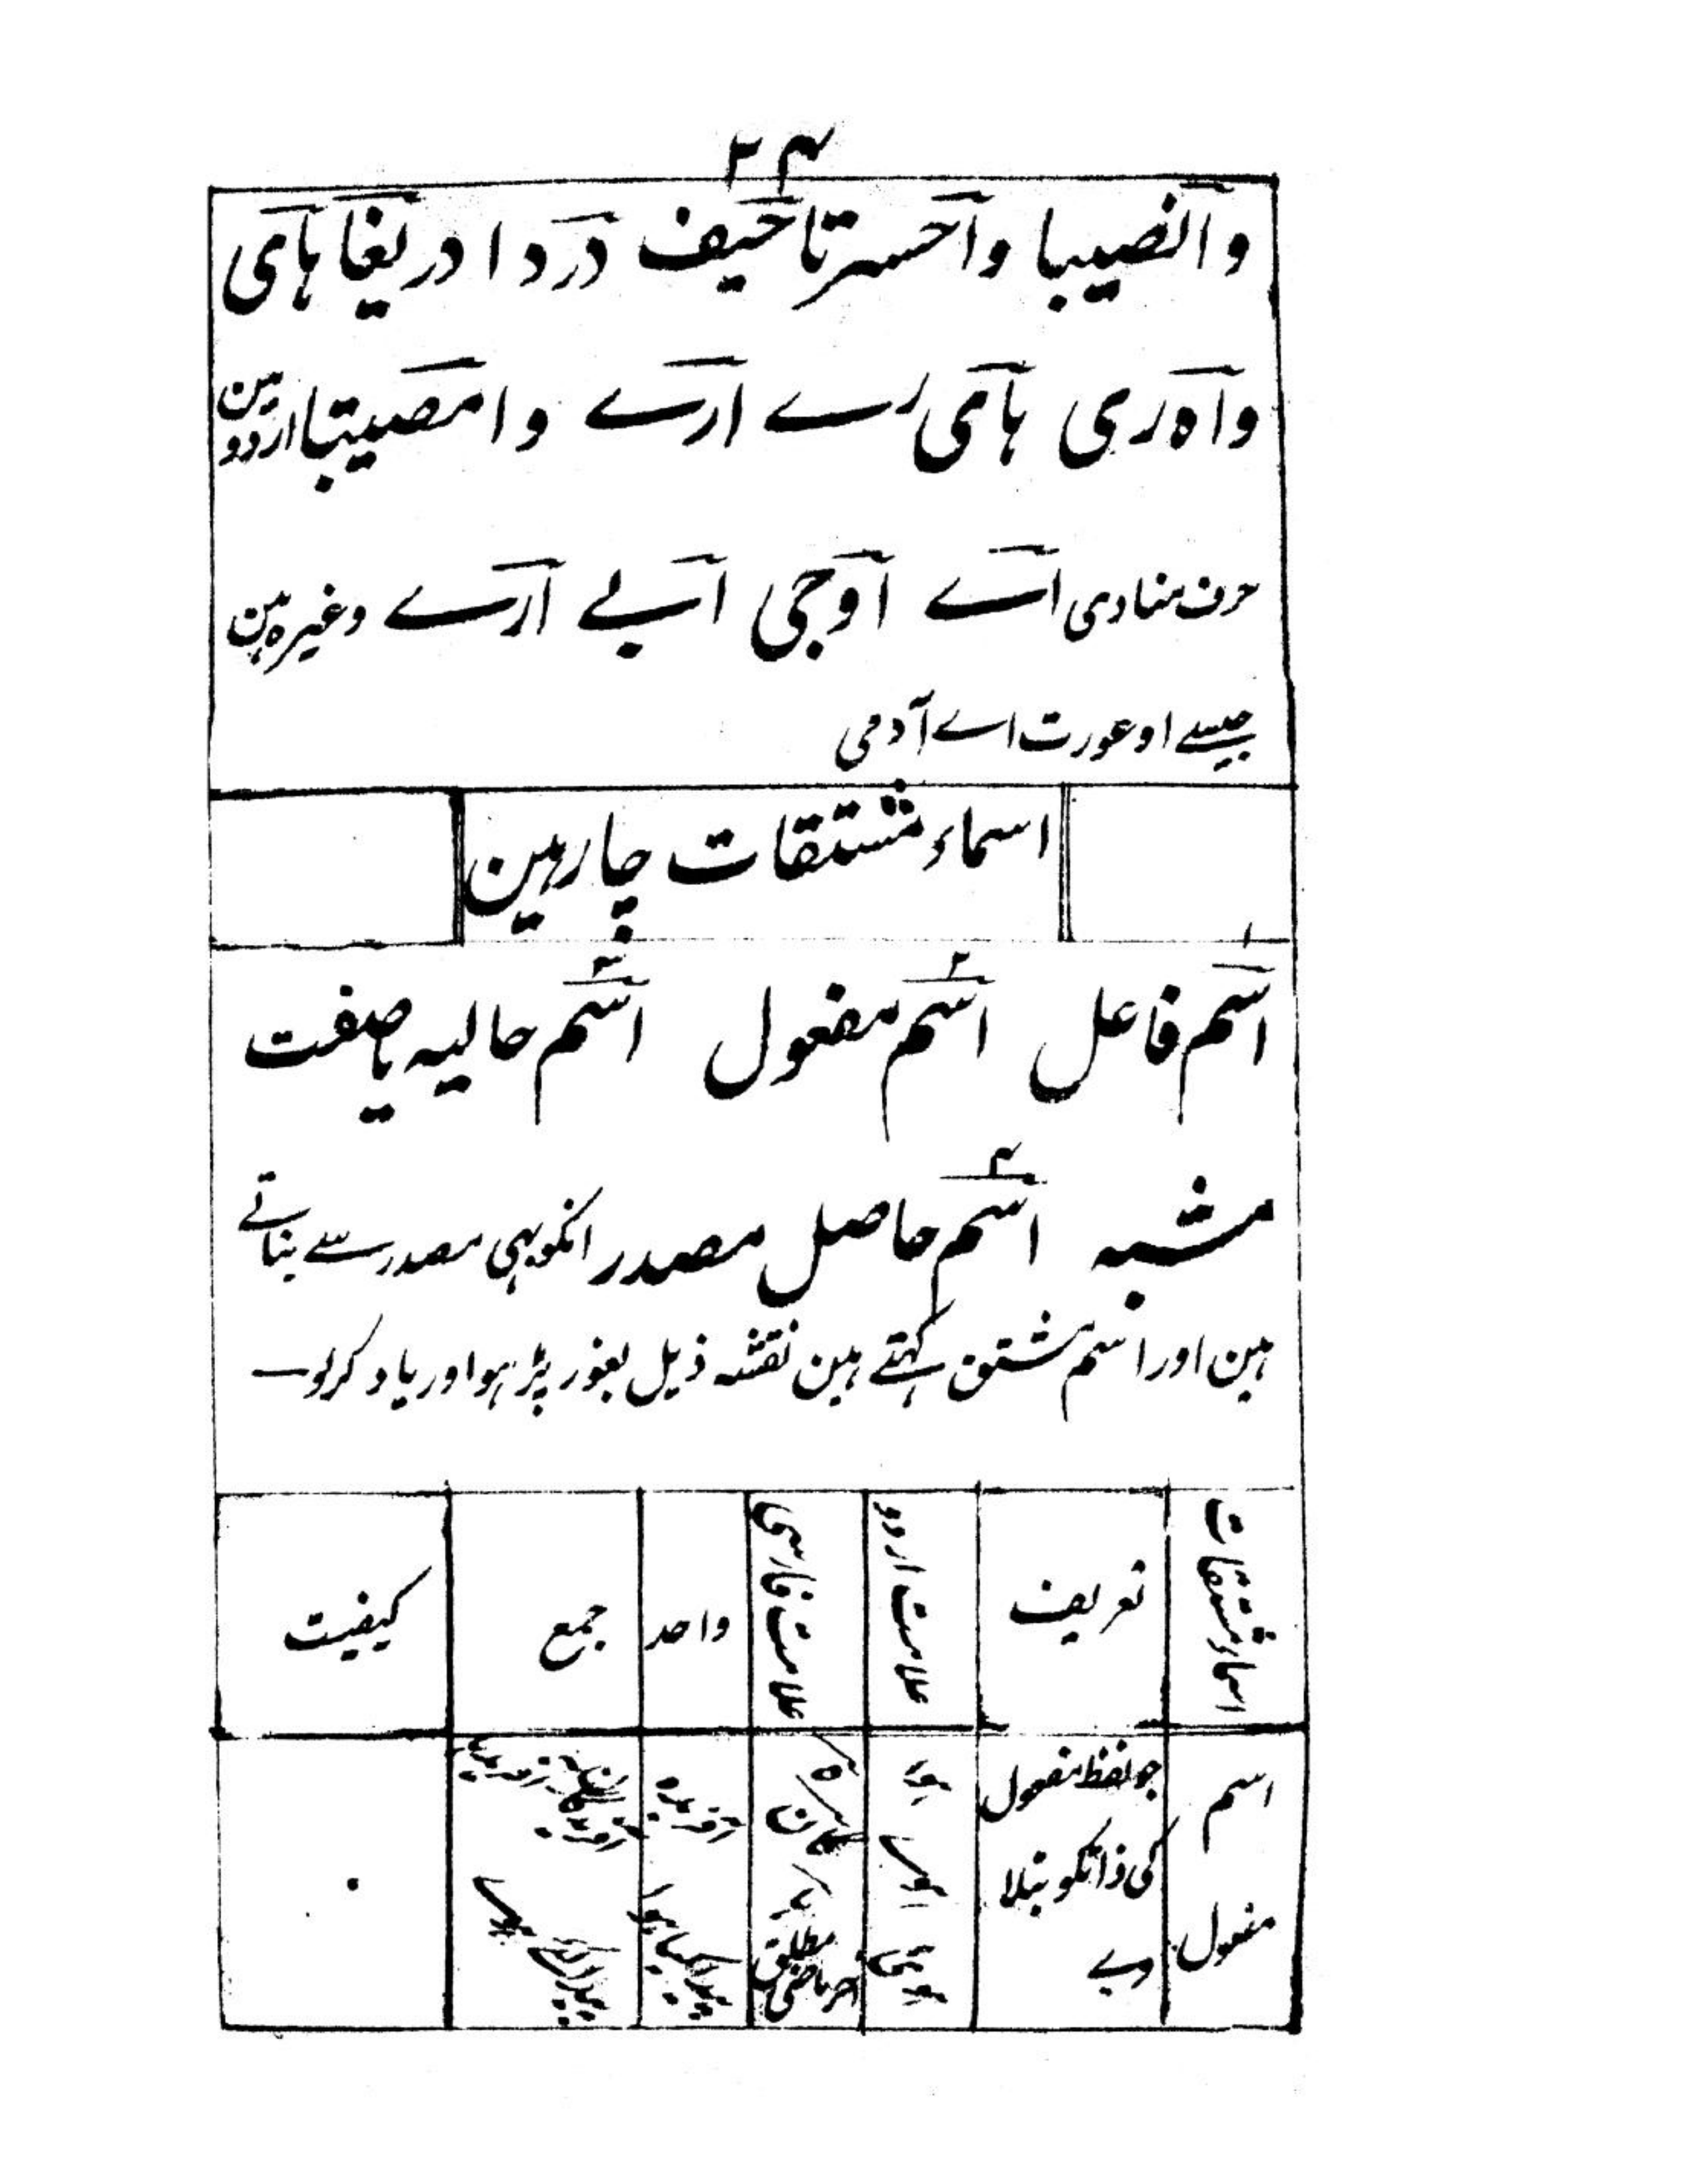 ۲۴
وانصیبا واحسرتا حیف دردا دریغا ہای
واہ ری ہای رے ارے وامصیبتا اردو مین
حرف منادی اے اوجی ابے ارے وغیرہ ہین
جیسے او عورت اے آدمی
اسماء مشتقات چار ہین
۱ ۲ ۳
اسم فاعل اسم مفعول اسم حالیہ یا صفت
۴
مشبہ اسم حاصل مصدر انکو بہی مصدر سے بناتے
ہین اور اسم مشتق کہتے ہین نقشہ ذیل بغور پڑہو اور یاد کرلو
اسماء مشتقات تعریف علامت اردو علامت فارسی واحد جمع کیفیت
اسم جو لفظ مفعول
کی ذاتکو بتلا
مفعول وے
ہوا
ہوئے
ہوئی
ہ
ن
آخر ماضی مطلق